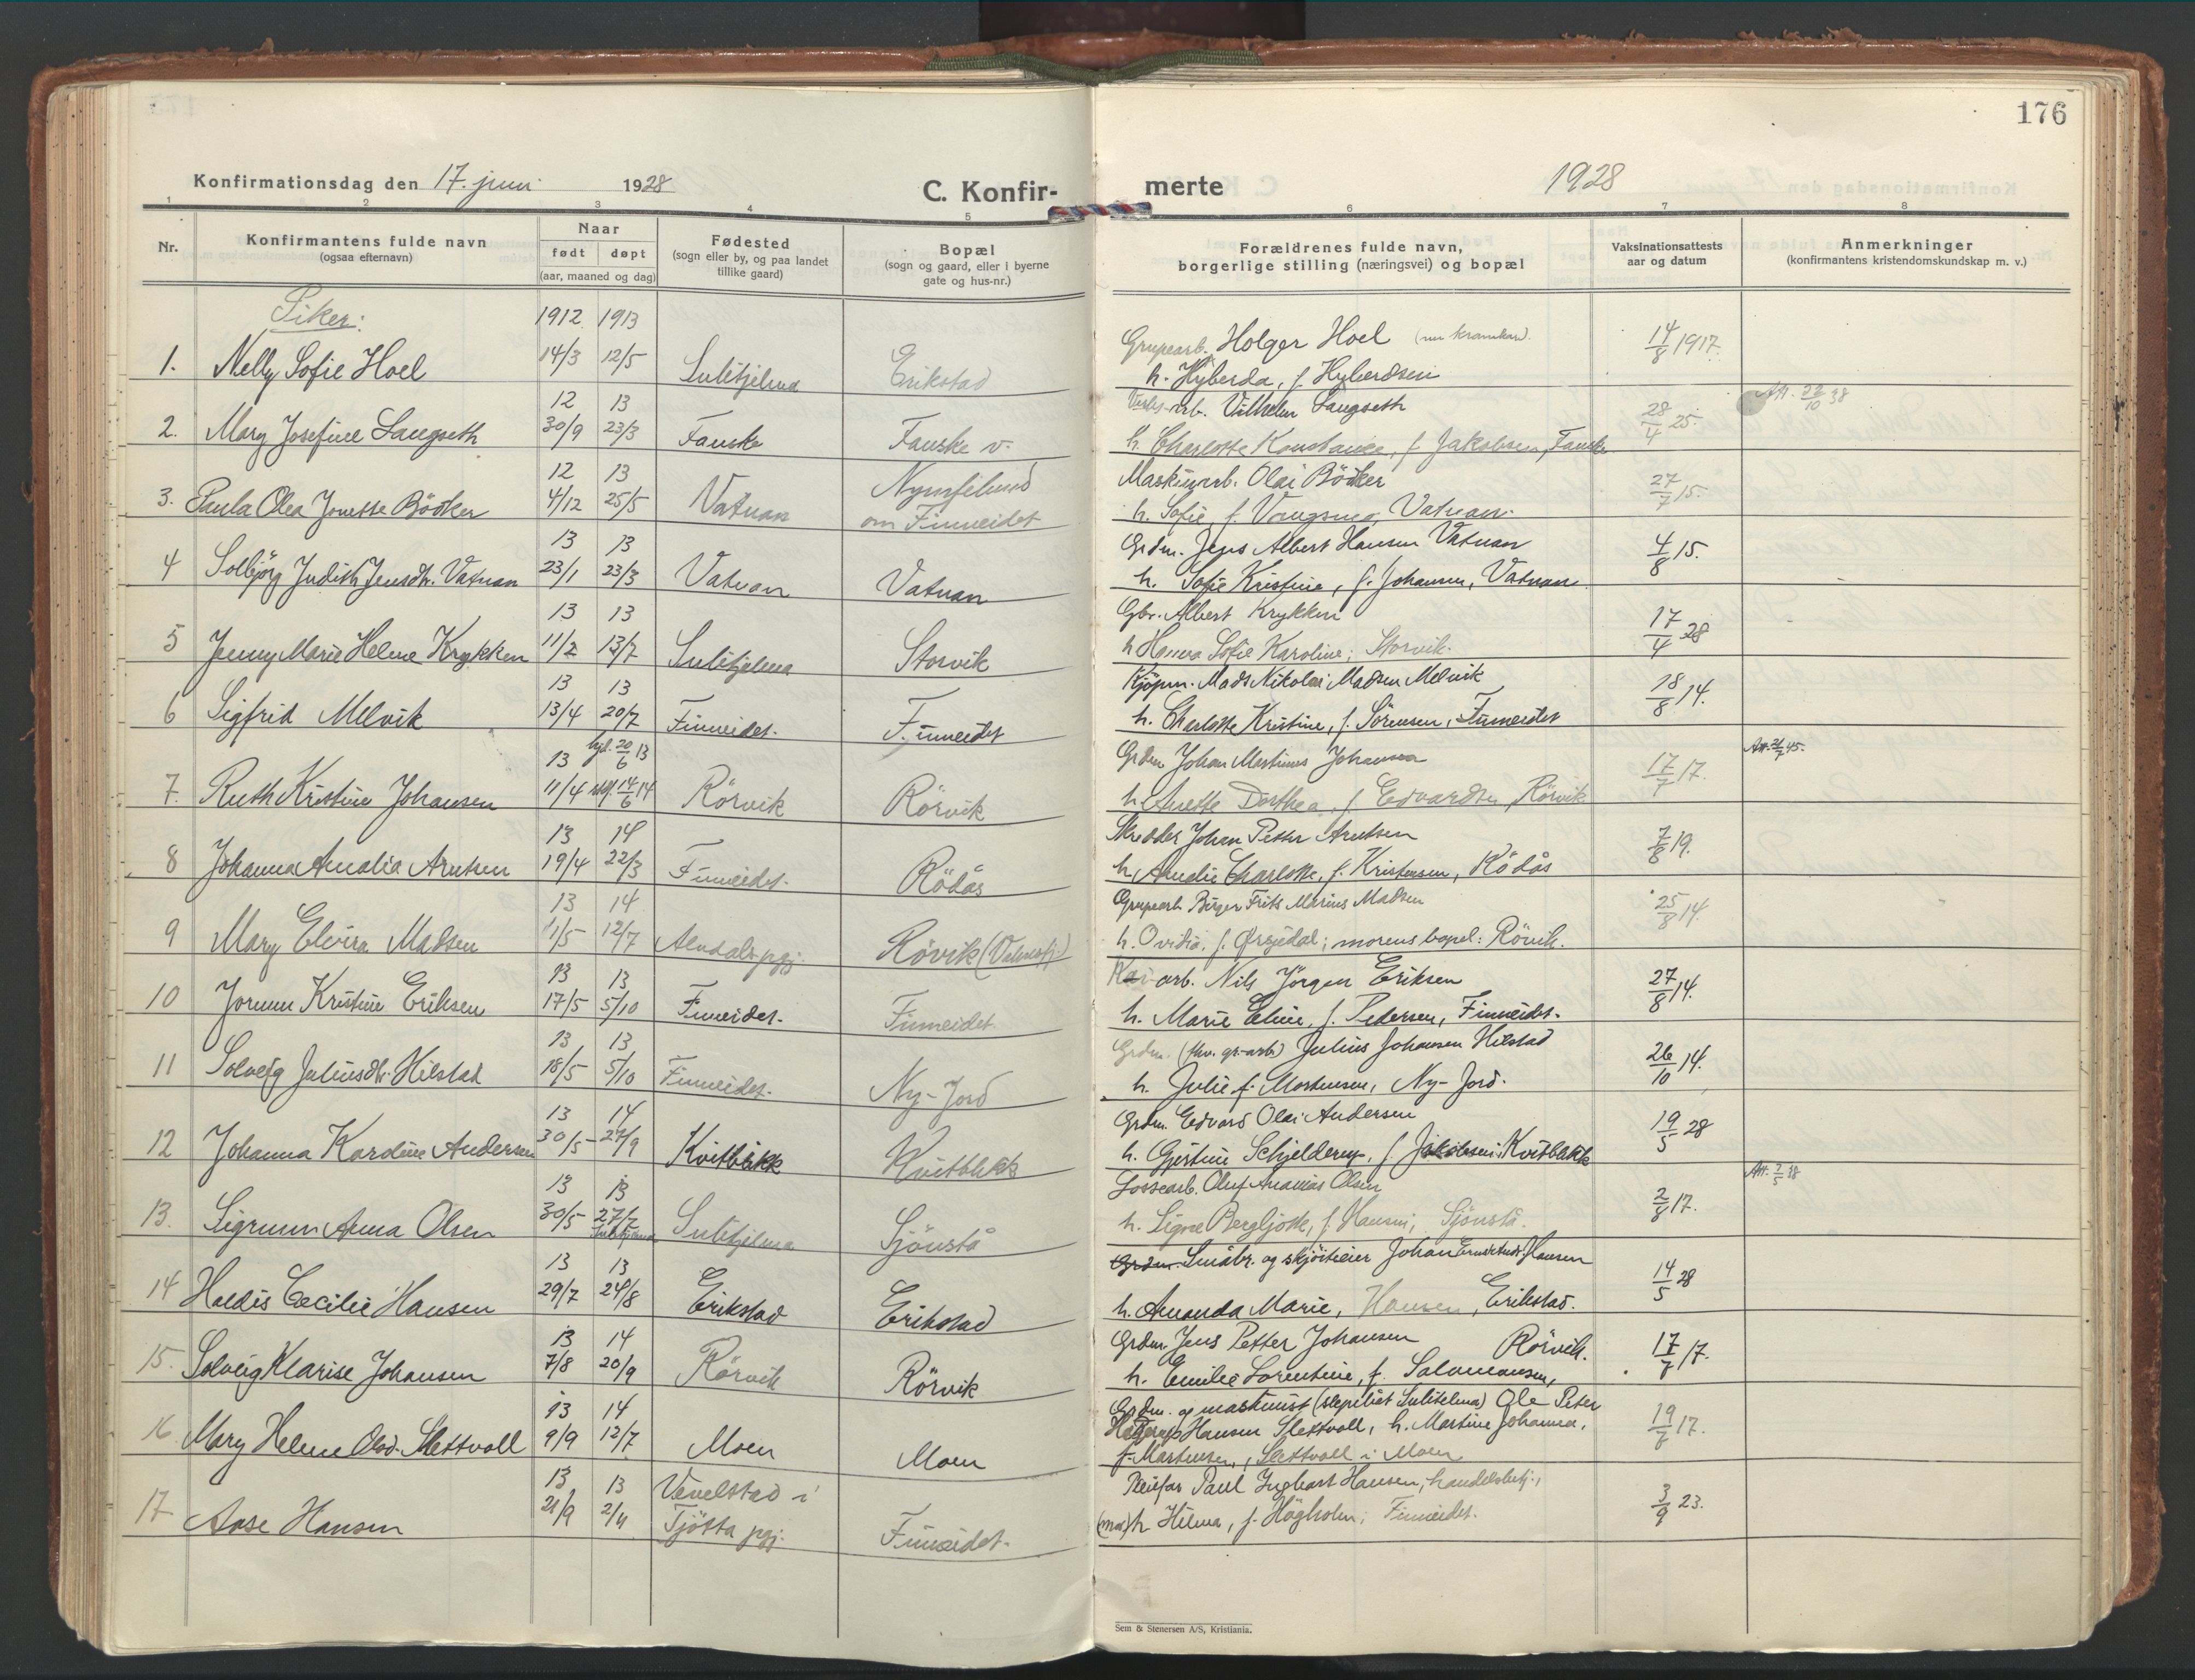 176
Konfirmationsdag den 17. juni 1928
C. Konfir-
merte
1928
1 2 3 4 5 6 7 8
Nr.
Konfirmantens fulde navn
(ogsaa efternavn)
Naar
født døpt
(aar, maaned og dag)
Fødested
(sogn eller by, og paa landet
tillike gaard)
Bopæl
(sogn og gaard, eller i byerne
gate og hus-nr.)
Forældrenes fulde navn,
borgerlige stilling (næringsvei) og bopæl
Vaksinationsattests
aar og datum
Anmerkninger
(konfirmantens kristendomskundskap m. v.)
Piker:
1912 1913
1. Nelly Sofie Hoel 14/3 12/5 Sulitjelma Erikstad
Grupearb. Holger Hoel
h. Hyberda, f. Hybertsen
14/8 1917.
12 13
2. Mary Josefine Langseth 30/9 23/3 Fauske Fauske v.
arb. Vilhelm Langseth
h. Charlotte Konstanse, f. Jakobsen, Fauske
28/4 25.
Att. 22/10 38
12 13
3. Paula Olea Jonette Bödker 4/12 25/5 Vatnan Nymfelund
om Finneidet
Maskinarb. Olai Bödker
h. Sofie, f. Vangsmo, Vatnan.
27/7 15.
13 13
4 Solbjörg Judith Jensdtr. Vatnan 23/1 23/3 Vatnan Vatnan
Grdm. Jens Albert Hansen Vatnan
h. Sofie Kristine, f. Johansen, Vatnan.
4/8 15.
13 13
5 Jenny Marie Helene Krykken 11/2 13/7 Sulitjelma Storvik
Gbr. Albert Krykken
h Hanna Sofie Karoline; Storvik.
17/4 28
13 13
6 Sigfrid Melvik 13/4 20/7 Finneidet. Finneidet
Kjöpm. Mads Nikolai Madsen Melvik
h. Charlotte Kristine, f. Sörensen, Finneidet
18/8 14.
13 hjd. 20/6 13
7. Ruth Kristine Johansen 11/4 14/6 14 Rörvik Rörvik
Grdm Johan Martinus Johansen
h Anette Dorthea, f. Edvardsen, Rörvik
17/7 17.
Att. 21/7 45.
13 14
8 Johanna Amalia Arntsen 19/4 22/3 Finneidet. Rödås
Skredder Johan Petter Arntsen
h. Amalie Charlotte, f. Kristensen, Rödås
7/8 19.
13 14
9 Mary Elvira Madsen 11/5 12/7 Rövik
Grupearb Birger Frits Marius Madsen
h. Ovidia, f. Örsjedal; morens bopel: Rövik.
25/8 14.
13 13
10 Jorunn Kristine Eriksen 17/5 5/10 Finneidet. Finneidet
arb. Nils Jörgen Eriksen
h. Marie Eline, f. Pedersen, Finneidet.
27/8 14.
13 13
11 Solveig Juliusdtr. Hilstad 18/5 5/10 Finneidet. Ny-Jord
Grdm. Julius Johansen Hilstad
h. Julie f. Mortensen, Ny-Jord.
26/10 14.
13 14
12 Johanna Karoline Andersen 30/5 27/9 Kvitblikk Kvitblikk
Grdm. Edvard Olai Andersen
h. Gjertine Schjelderup, f. Jakobsen; Kvitblikk
19/5 28
13 13
13. Sigrunn Anna Olsen 30/5 27/7 Sulitjelma Sulitjelma Sjönstå
Lossearb. Oluf Ananias Olsen
h. Signe Bergljott, f. Hansen; Sjönstå.
2/8 17.
Att. 2/5 38
13 13
14 Haldis Cecilie Hansen 29/7 24/8 Erikstad Erikstad
Grdm. Småbr. og skjöiteeier Johan Hansen
h. Amanda Marie, Hansen, Erikstad.
14/5 28
13 14
15. Solveig Klarise Johansen 7/8 20/9 Rörvik Rörvik
Grdm Jens Petter Johansen Rörvik.
h. Emilie Lorentine, f. Salomonsen,
17/7 17.
13 14
16. Mary Helene Olsd. Slettvoll 9/9 12/7 Moen Moen
Grdm. og maskinist Ole Peter
Hansen Slettvoll, h. Martine Johanna,
f. Martinsen, Slettvoll i Moen
13 13
17 Aase Hansen 21/9 2/11 Venelstad i
Tjötta pgj. Finneidet.
Pleiefar Paul Ingbart Hansen, handelsbetj.,
(mor) h Hilma, f. Högholm; Finneidet.
3/9 23.
Sem & Stenersen A/S, Kristiania.